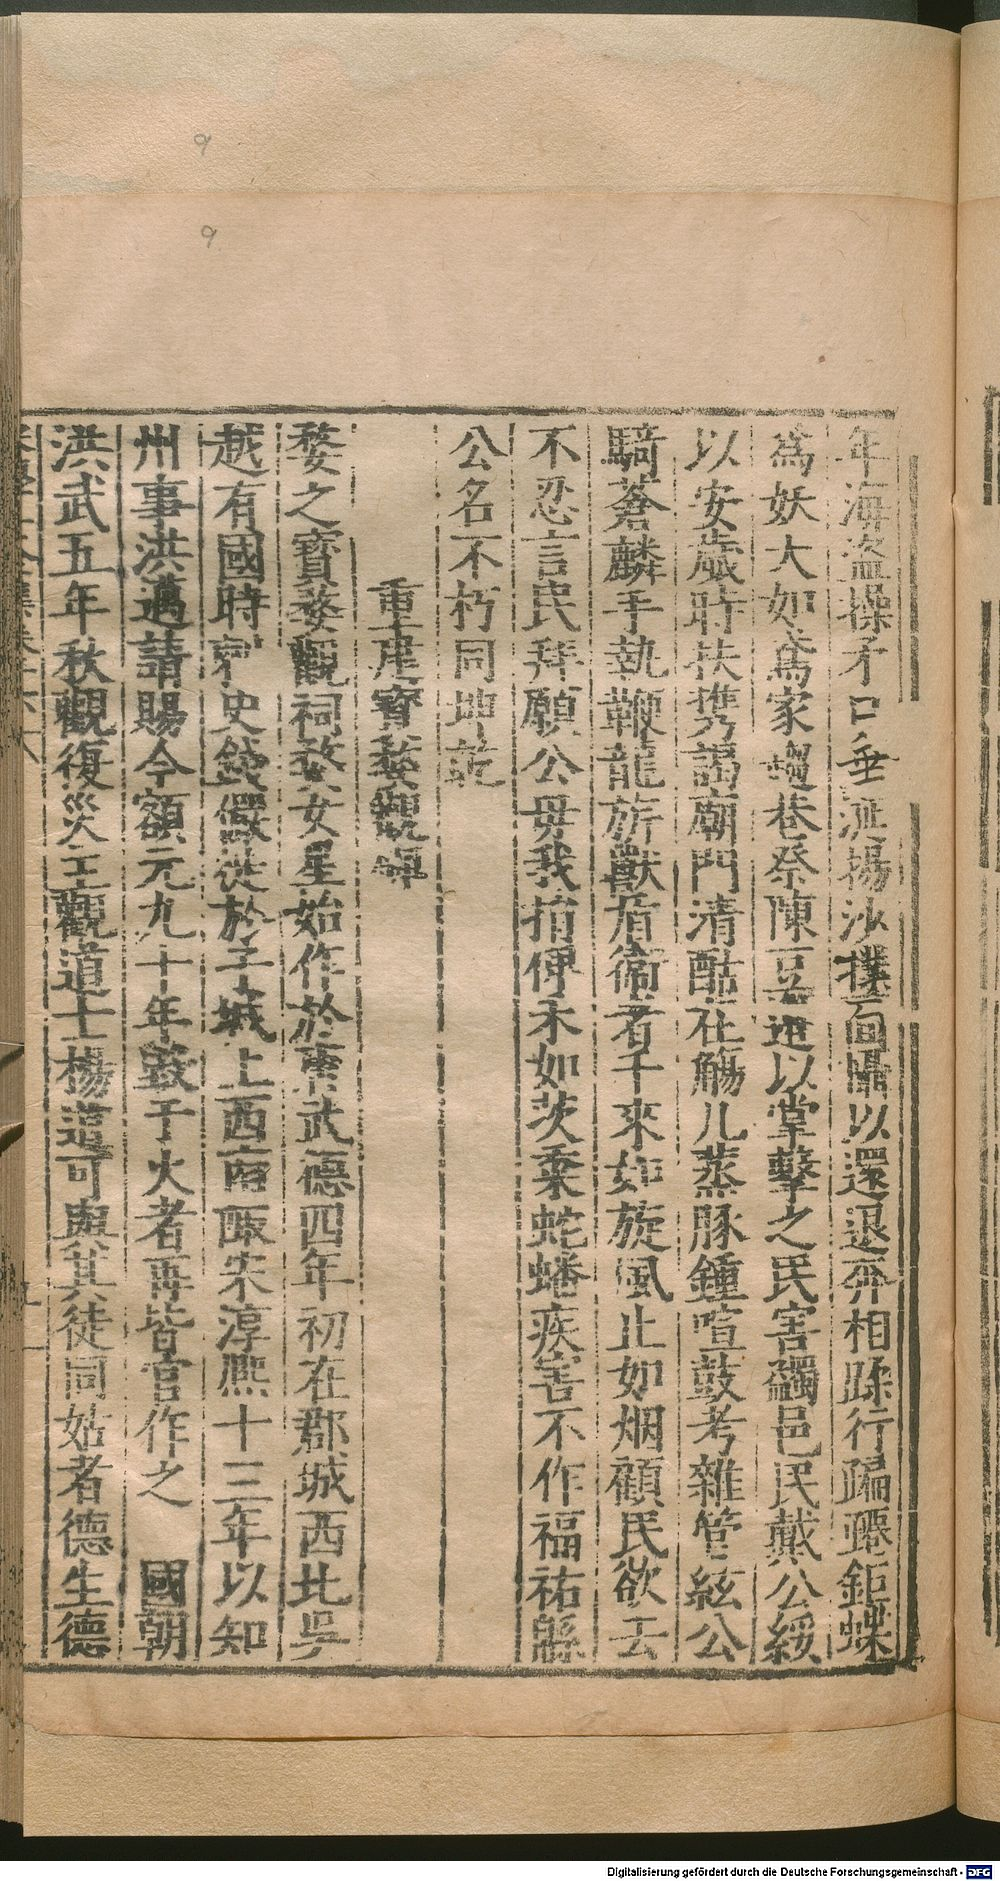 年海盜操矛口垂涎揚沙撲面懾以還退奔相蹂行蹁躚鉅蝶
為妖大如鳶家塲巷祭陳豆籩以掌擊之民害蠲邑民戴公綏
以安歲時扶携謁廟門清酤在觴几蒸豚鍾喧鼓考雜管絃公
騎蒼麟手執鞭龍旂獸盾衞者千來如旋風止如烟顧民欲去
不忍言民拜願公毋我捐俾禾如茨棄蛇蟠疾害不作福祐緜
公名不朽同坤乾
重建寶婺觀碑
婺之寶婺觀祠婺女星始作於唐武德四年初在郡城西北吳
越有國時刺史錢儼徙於子城上西南陬宋淳熙十三年以知
州事洪邁請賜今額元九十年毀于火者再皆官作之　國朝
洪武五年秋觀復災主觀道士楊道可與其徒同姑者德生德
9
9
Digitalisierung gefördert durch die Deutsche Forschungsgemeinschaft - DFG